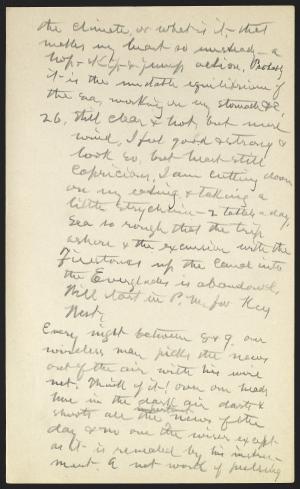 the climate, or what is it - that
makes my heart so unsteady - a
hop & skip & jump action. Probably
it is the unstable equilibrium of
the sea, working on my stomach &c.
26, Still clear & hot, but more
wind, I feel good & strong &
look so, but heart still
capricious, I am cutting down
on my eating & taking a
little strychnin - 2 tablets a day,
Sea so rough that the trip
ashore & the excursion with the
Firestones up the canal into
the Everglades is abandoned,
Will start in P.M. for Key
West,
Every night between 8 & 9. our
wireless man picks the news
out of the air with his wire
net. Think of it! over our heads
here in the dark air darts &
shoots all the important news of the
day & no one the wiser except
as it is revealed by his instru-
ment. A net work of pulsing